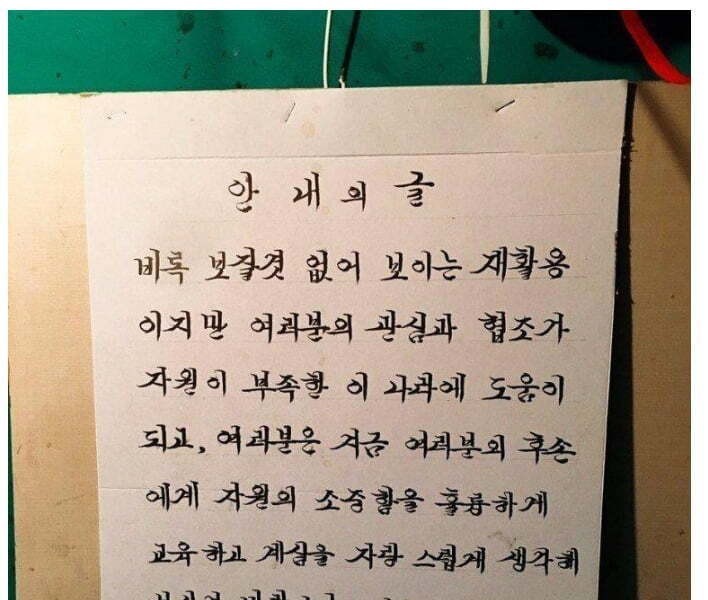 안내의 글
비록 보잘것 없어 보이는 재활용
이지만 여러분의 관심과 협조가
자원이 부족한 이 나라에 도움이
되고, 여러분은 지금 여러분의 후손
에게 자원의 소중함을 훌륭하게
교육하고 계심을 자랑 스럽게 생각해